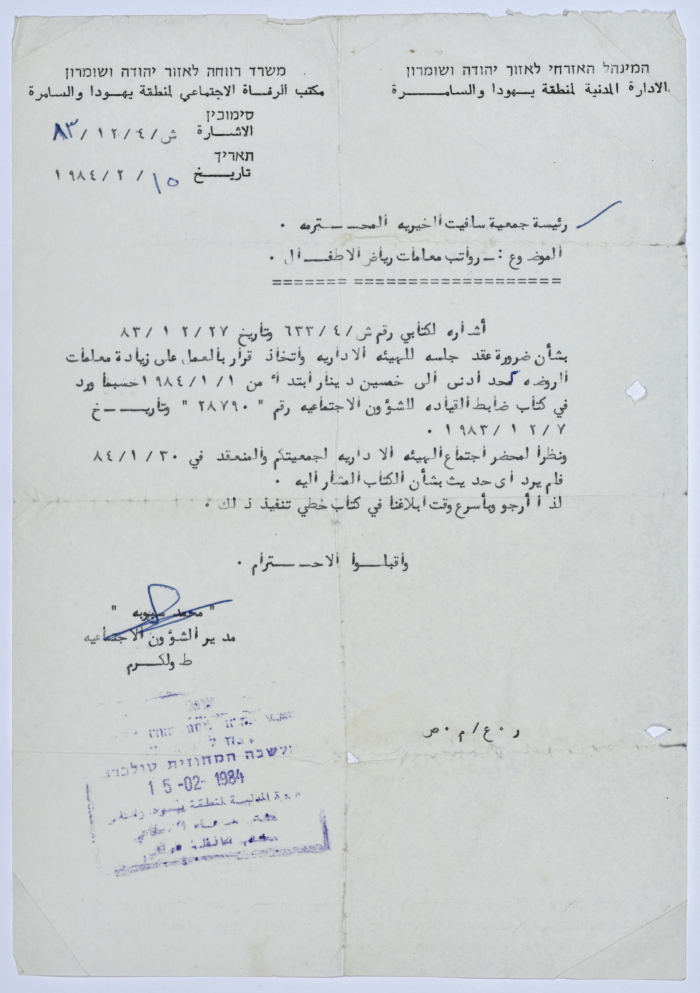 המינהל האזרחי לאזור יהודה ושומרון
الادارة المدنية لمنطقة يهودا والسامرة
משרד רווחה לאזור יהודה ושומרון
مكتب الرفاة الاجتماعي لمنطقة يهودا والسامرة
סימוכין
الاشارة ش/١٢/٤/٨٣
תאריך
تاريخ ١٥/٢/١٩٨٤
رئيسة جمعية سافيت الخيريه المحترمه .
الموضوع :ـ رواتب معلمات رياض الاطفال .
===================== =======
أشاره لكتابي رقم ش/٦٣٣/٤ وتأريخ ٨٣/١٢/٢٧
بشأن ضرورة عقد جلسه للهيئه الاداريه واتخاذ قرار بالعمل على زيادة معلمات
الروضه كحد أدنى الى خمسين دينار ابتدأ من ١٩٨٤/١/١ حسبما ورد
في كتاب ضابط القياده للشؤون الاجتماعيه رقم " ٢٨٧٩٠ " وتأريخ
١٩٨٣/١٢/٧ .
ونظرا لمحضر اجتماع الهيئه الاداريه لجمعيتكم والمنعقد في ٨٤/١/٣٠
فلم يرد أى حديث بشأن الكتاب المشار اليه .
لذا أرجو وبأسرع وقت ابلاغنا في كتاب خطي تنفيذ ذلك .
واقبلوا الاحترام .
" محمد "
مدير الشؤون الاجتماعيه
طولكرم
ر.ع/م.ص
לשכה המחוזית טולכרם
15-02-1984
المدنية لمنطقة يهودا